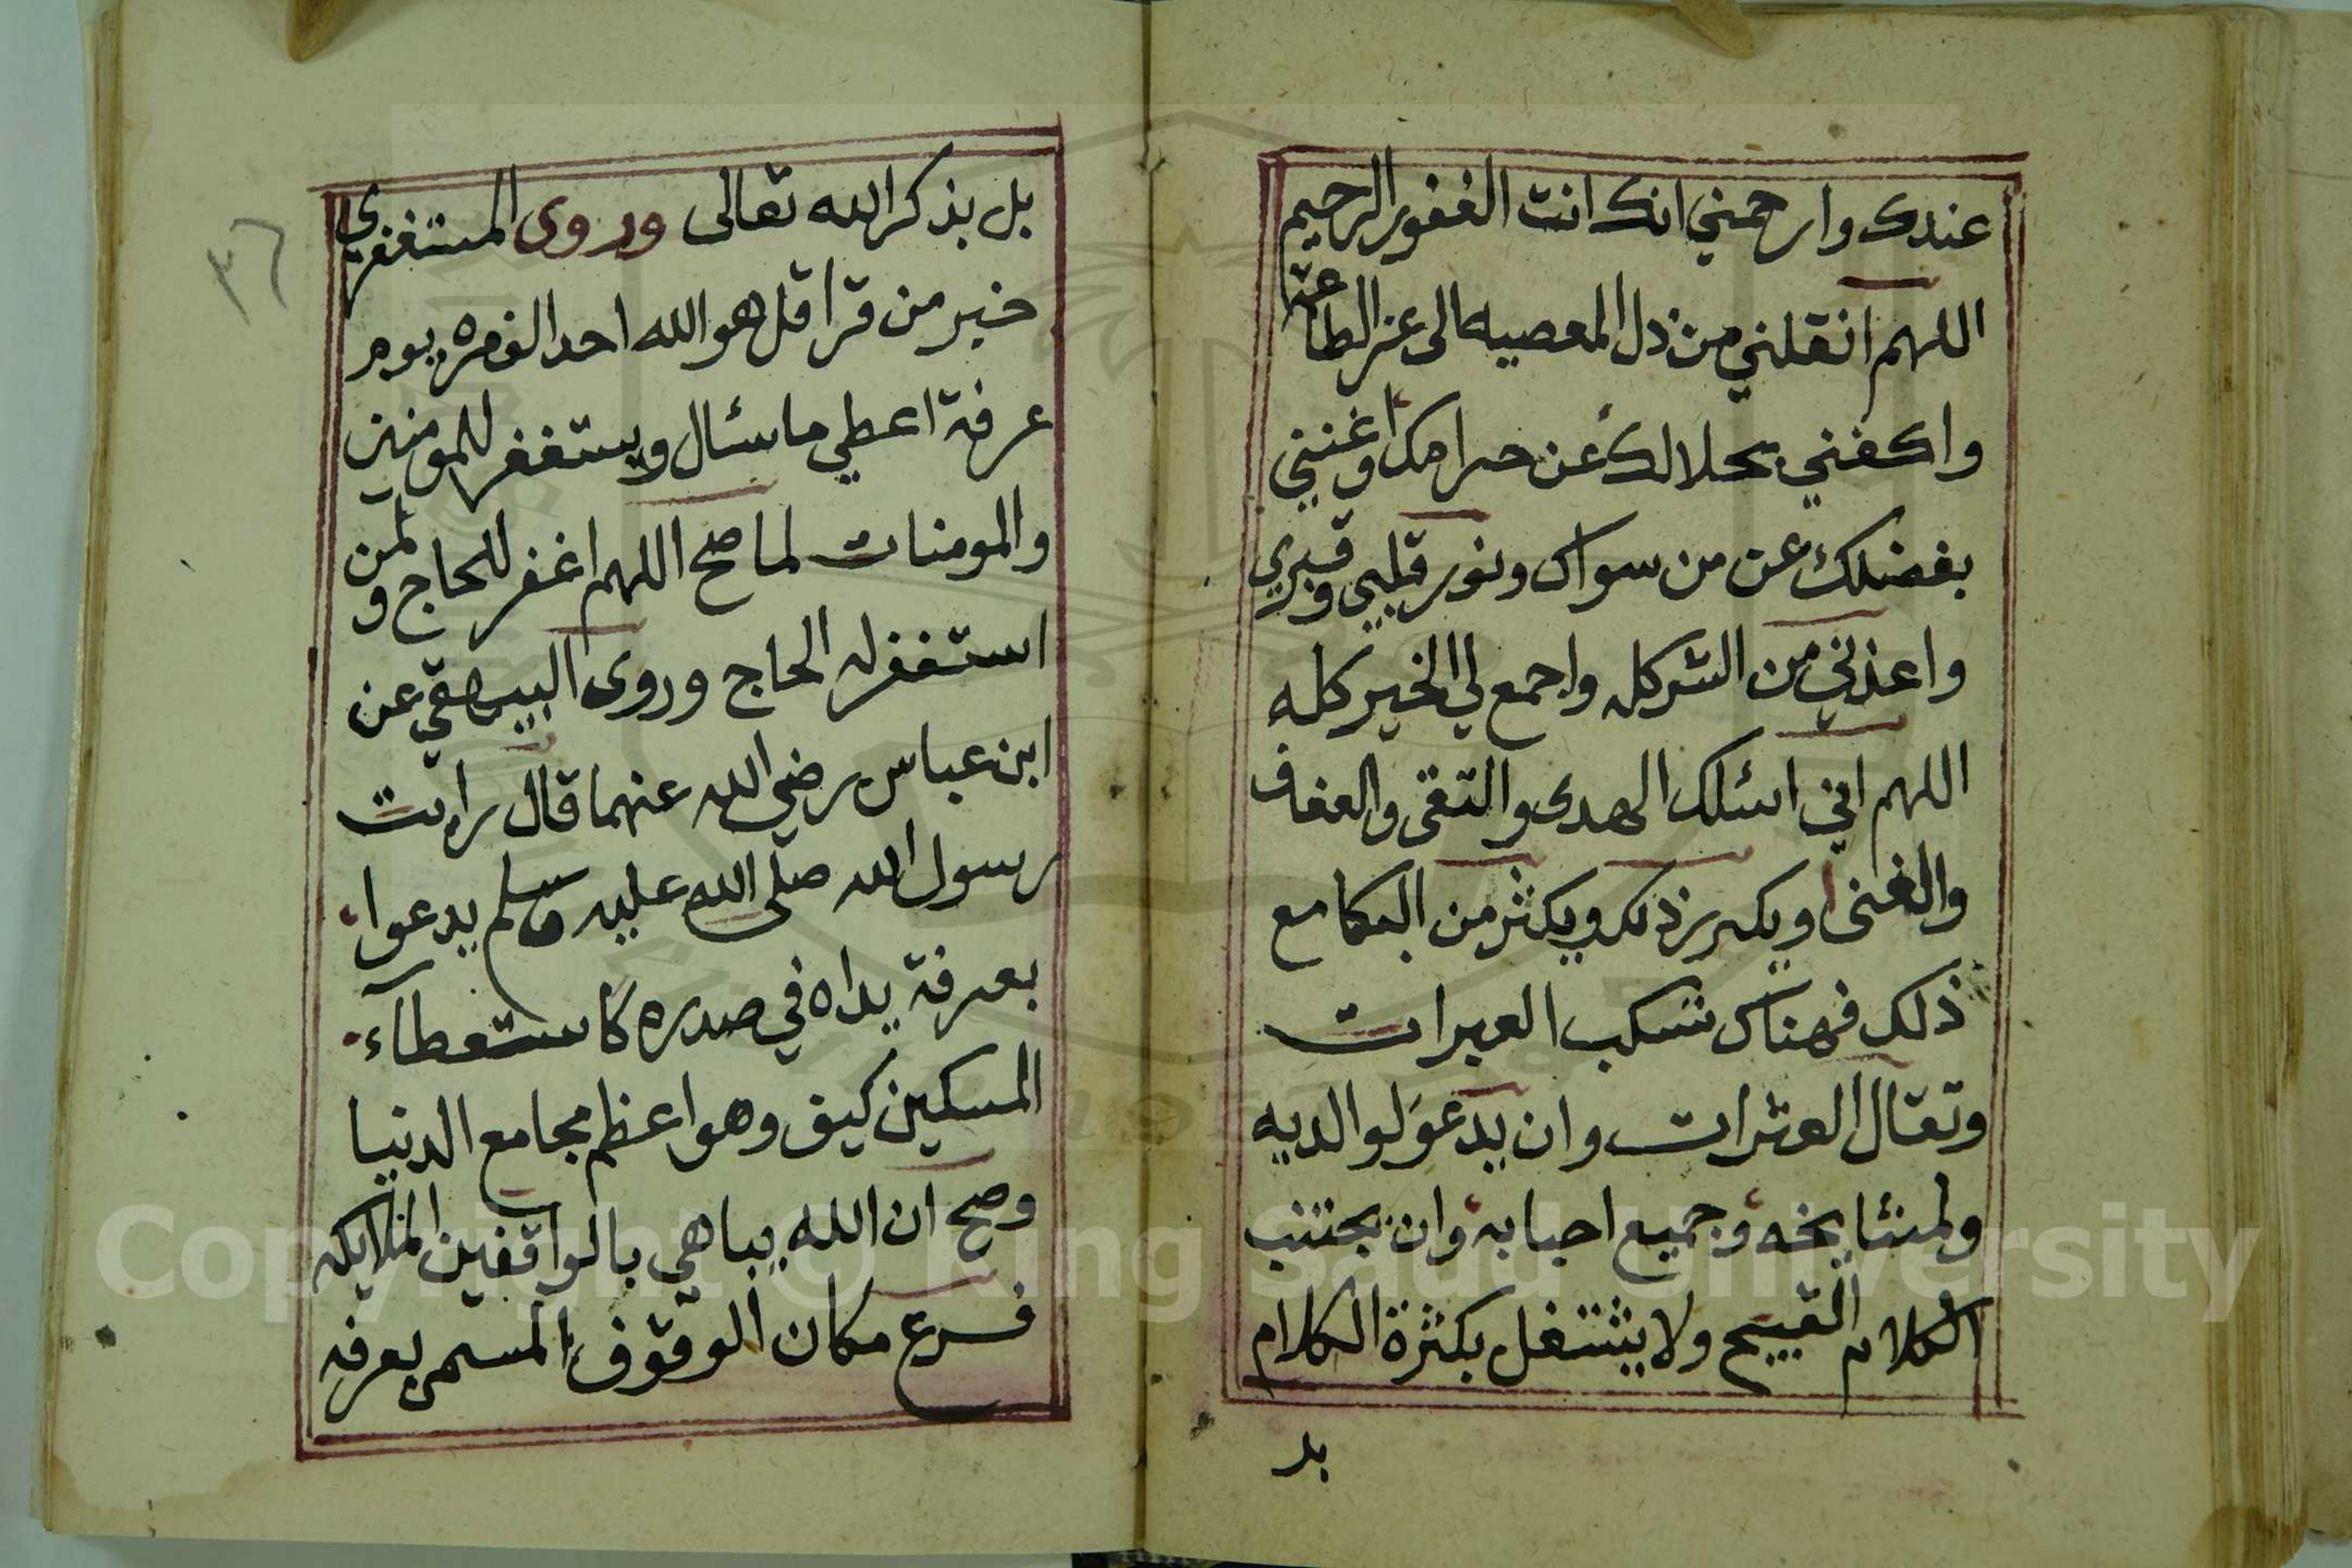 عندك وارحمني انك انت الغفور الرحيم
اللهم انقلني من ذل المعصيه الى عز الطاعة
واكفني بحلالك عن حرامك واغنني
بفضلك عن من سواك ونور قلبي وقبري
واعذني من الشر كله واجمع لي الخير كله
اللهم اني اسئلك الهدى والتقى والعفاف
والغنى ويكرر ذلك ويكثر من البكا مع
ذلك فهناك تسكب العبرات
وتقال العثرات وان يدعو لوالديه
ولمشايخه وجميع احبابه وان يجتنب
الكلام القبيح ولا يشتغل بكثرة الكلام
بل
٣٦
بل بذكر الله تعالى وروى المستغفري
خبر من قرا قل هو الله احد الف مره يوم
عرفة اعطي ما سئال ويستغفر للمومنين
والمومنات لما صح اللهم اغفر للحاج ولمن
استغفر له الحاج وروى البيهقي عن
ابن عباس رضي الله عنهما قال رايت
رسول الله صلى الله عليه وسلم يدعوا
بعرفة يداه في صدره كاستعطآء
المسكين كيف وهو اعظم مجامع الدنيا
وصح ان الله يباهي بالواقفين الملايكه
فرع مكان الوقوف المسمى بعرفه
Copyright © King Saud University